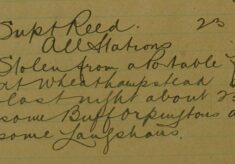 Supt Reed. 23
All Stations
Stolen from a Portable
at Wheathampstead
last night about 23
some Buff Orpingtons a
some Langshans.